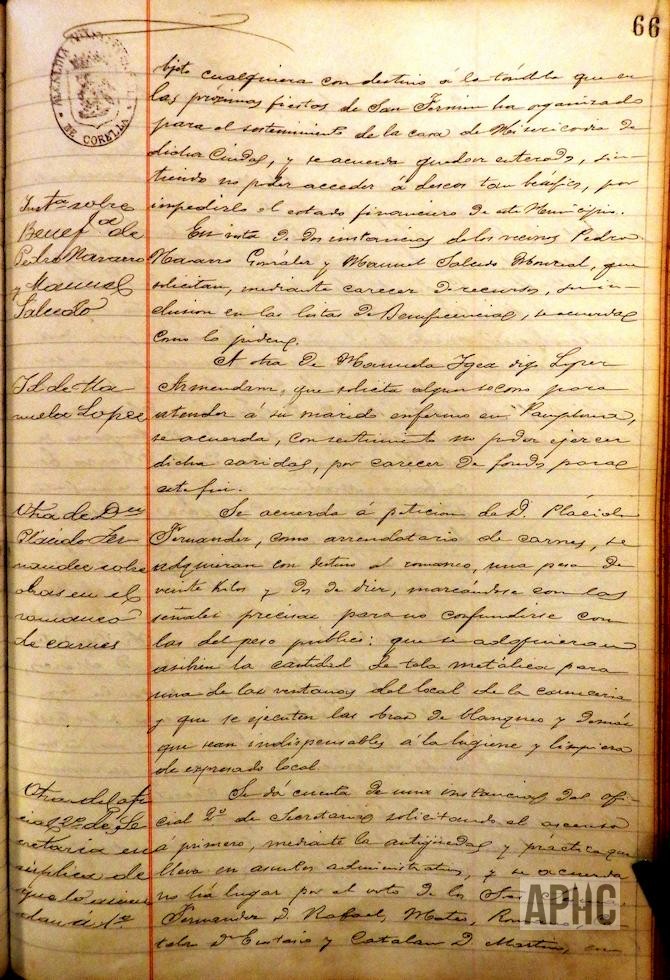 66
ALCALDIA
DE CORELLA
bjeto cualquiera con destino á la tómbola que en
las próximas fiestas de San Fermin ha organizado
para el sostenimiento de la casa de Misericordia de
dicha Ciudad, y se acuerda quedar enterado, sin-
tiendo no poder acceder á deseos tan benéficos, por
impedirlo el estado financiero de este Municipio.
Instª sobre
Benefª de
Pedro Navarro
y Manuel
Salcedo
En vista de dos instancias de los vecinos Pedro
Navarro González y Manuel Salcedo Monreal, que
solicitan, mediante carecer de recursos, su in-
clusion en las listas de Beneficencia, se acuerda
como lo piden.
Id. de Ma-
nuela Lopez
A otra de Manuela Igea digo Lopez
Armendariz, que solicita algun socorro para
atender á su marido enfermo en Pamplona,
se acuerda, con sentimiento no poder ejercer
dicha caridad, por carecer de fondos para
este fin.
Otra de Dn
Plácido Fer-
nandez sobre
obras en el
romaneo
de carnes
Se acuerda á peticion de D. Plácido
Fernandez, como arrendatario de carnes, se
adquieran con destino al romaneo, una pesa de
veinte kilos y dos de diez, marcándose con las
señales precisas para no confundirse con
las del peso publico: que se adquieran
asibien la cantidad de tela metálica para
una de las ventanas del local de la carniceria
y que se ejecuten las obras de blanqueo y demás
que sean indispensables á la higiene y limpieza
de expresado local.
Otra del ofi-
cial 2º de Se-
cretaria en
súplica de
que lo ascien-
dan á 1º
Se dá cuenta de una instancia del ofi-
cial 2º de Secretaria solicitando el ascenso
á primero, mediante la antigüedad y práctica que
lleva en asuntos administrativos, y se acuerda
no há lugar por el voto de los Sres
Fernandez D. Rafael, Mateo,
Dn Eustasio y Catalan D. Martin, en
APHC